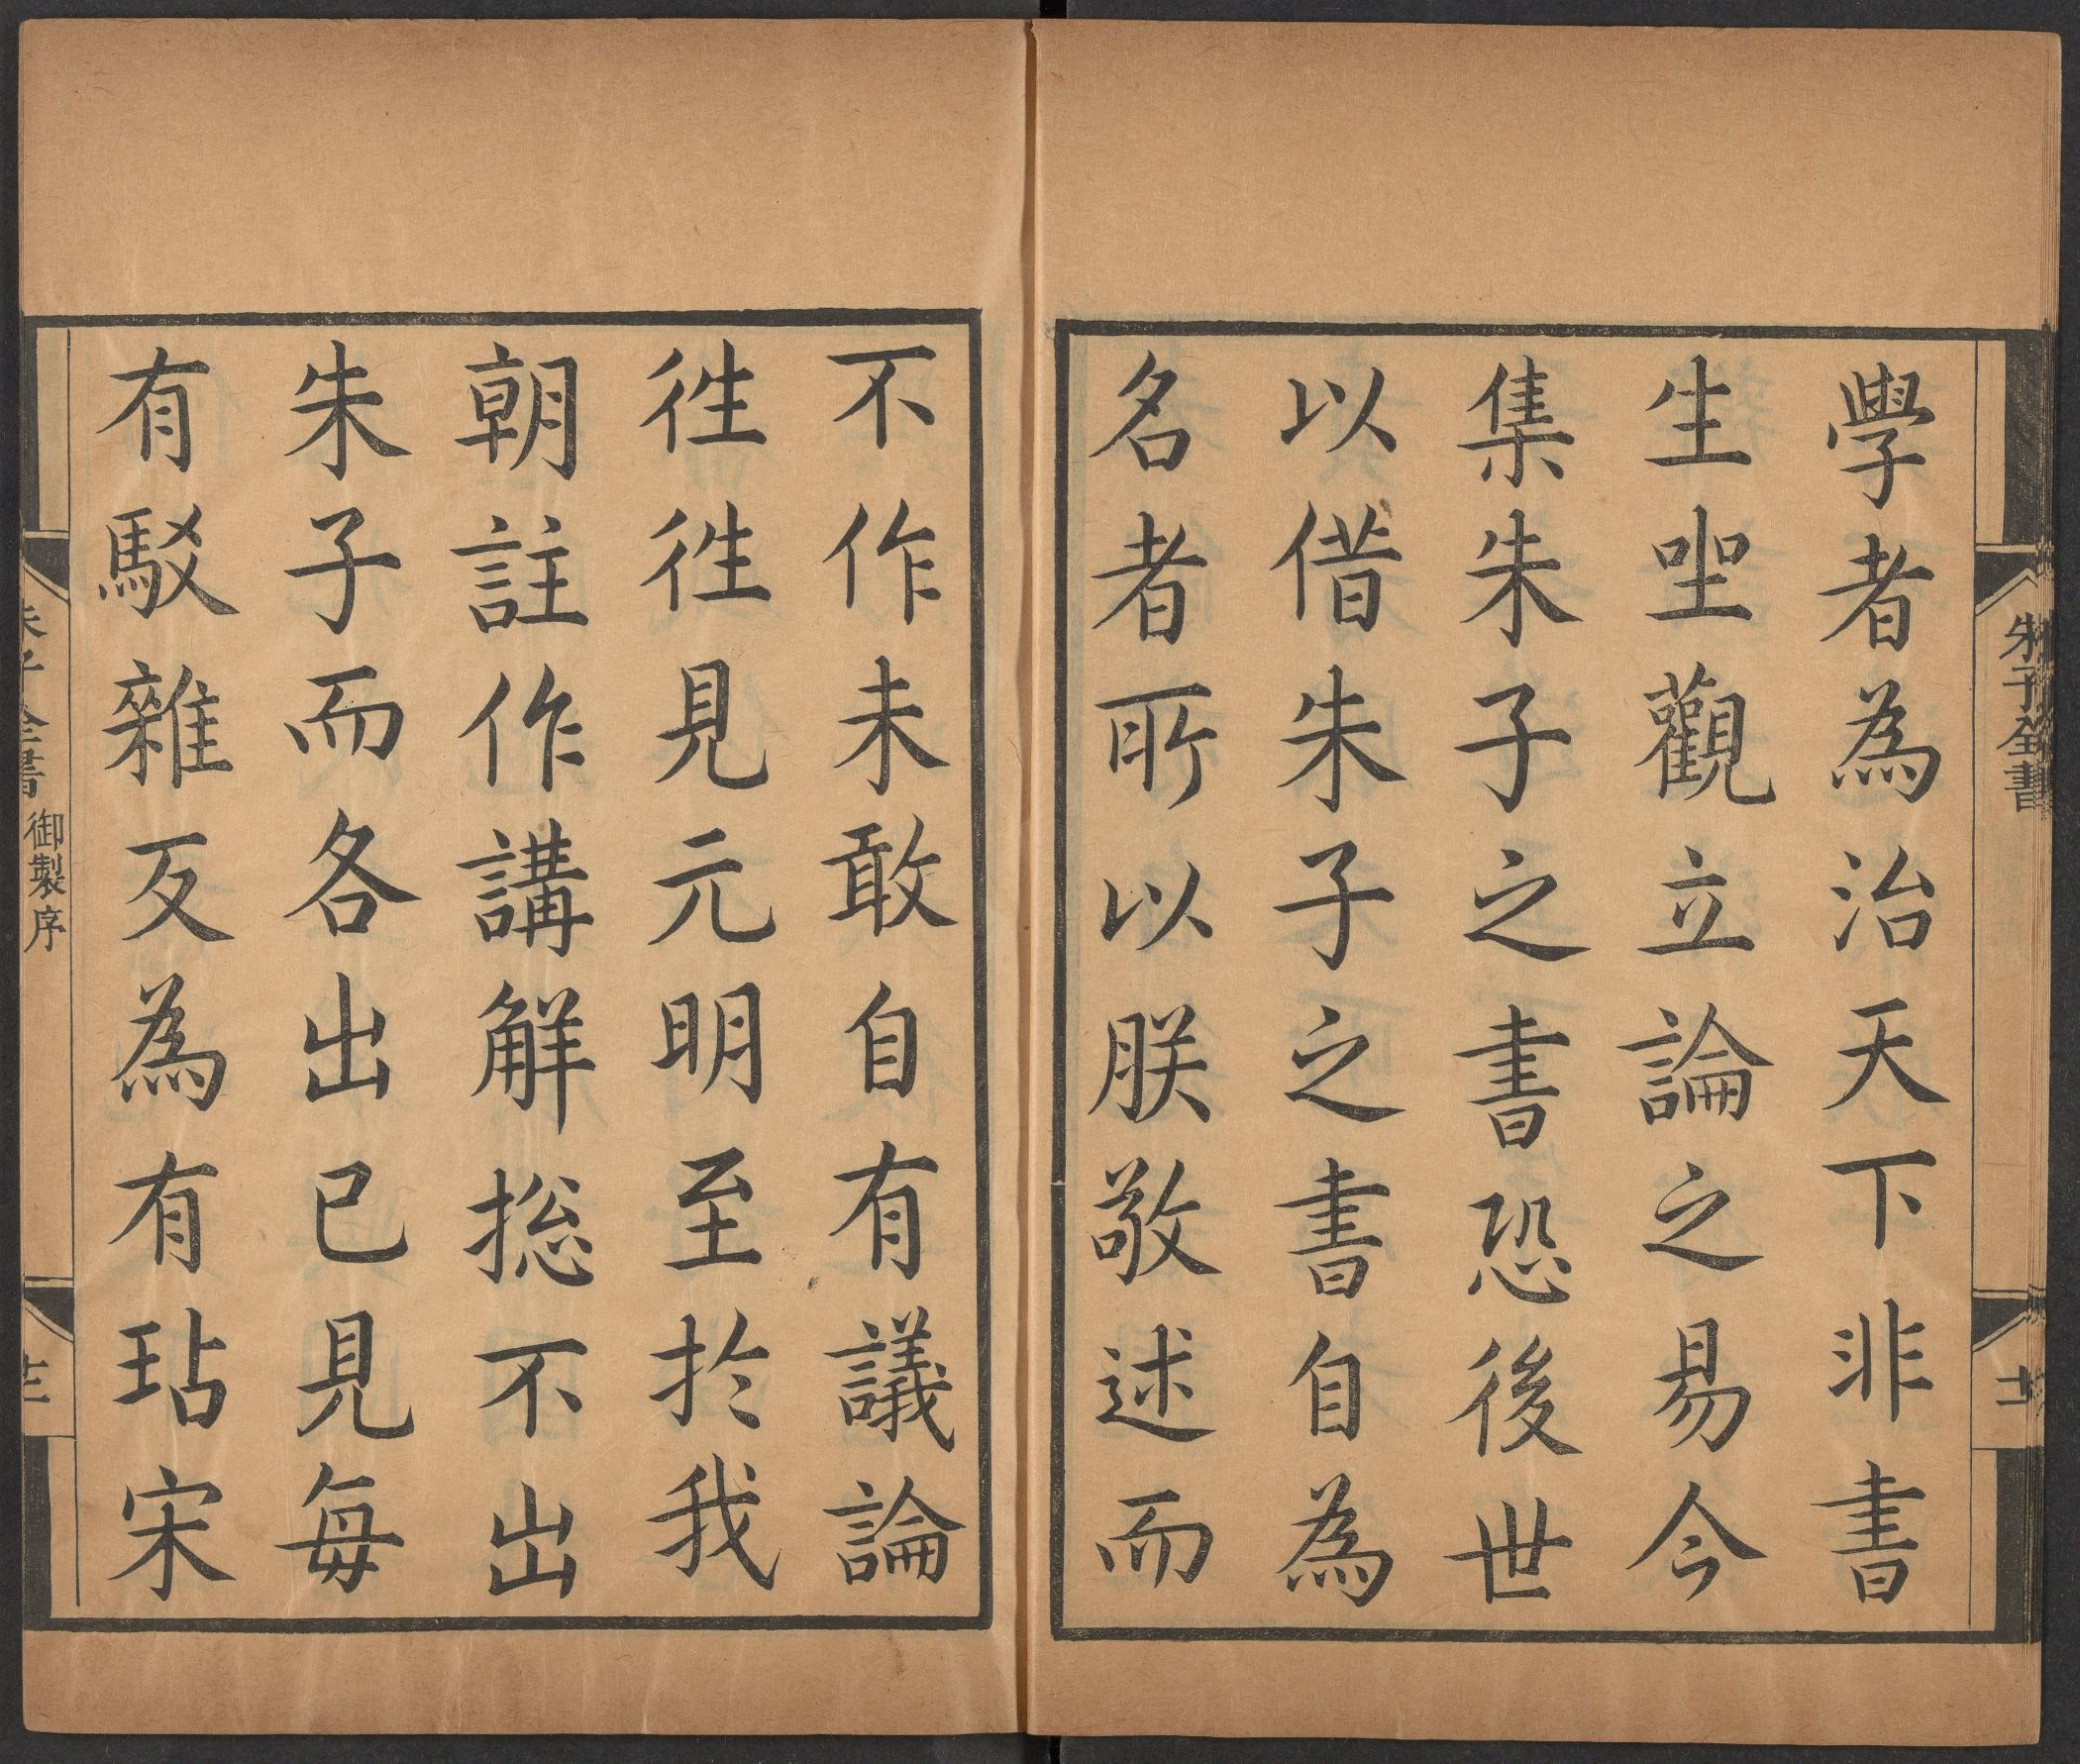 朱子全書
學者為治天下非書
生坐觀立論之易今
集朱子之書恐後世
以借朱子之書自為
名者所以朕敬述而
不作未敢自有議論
徃徃見元明至於我
朝註作講解総不出
朱子而各出己見每
有駁雜反為有玷宋
朱子全書
御製序